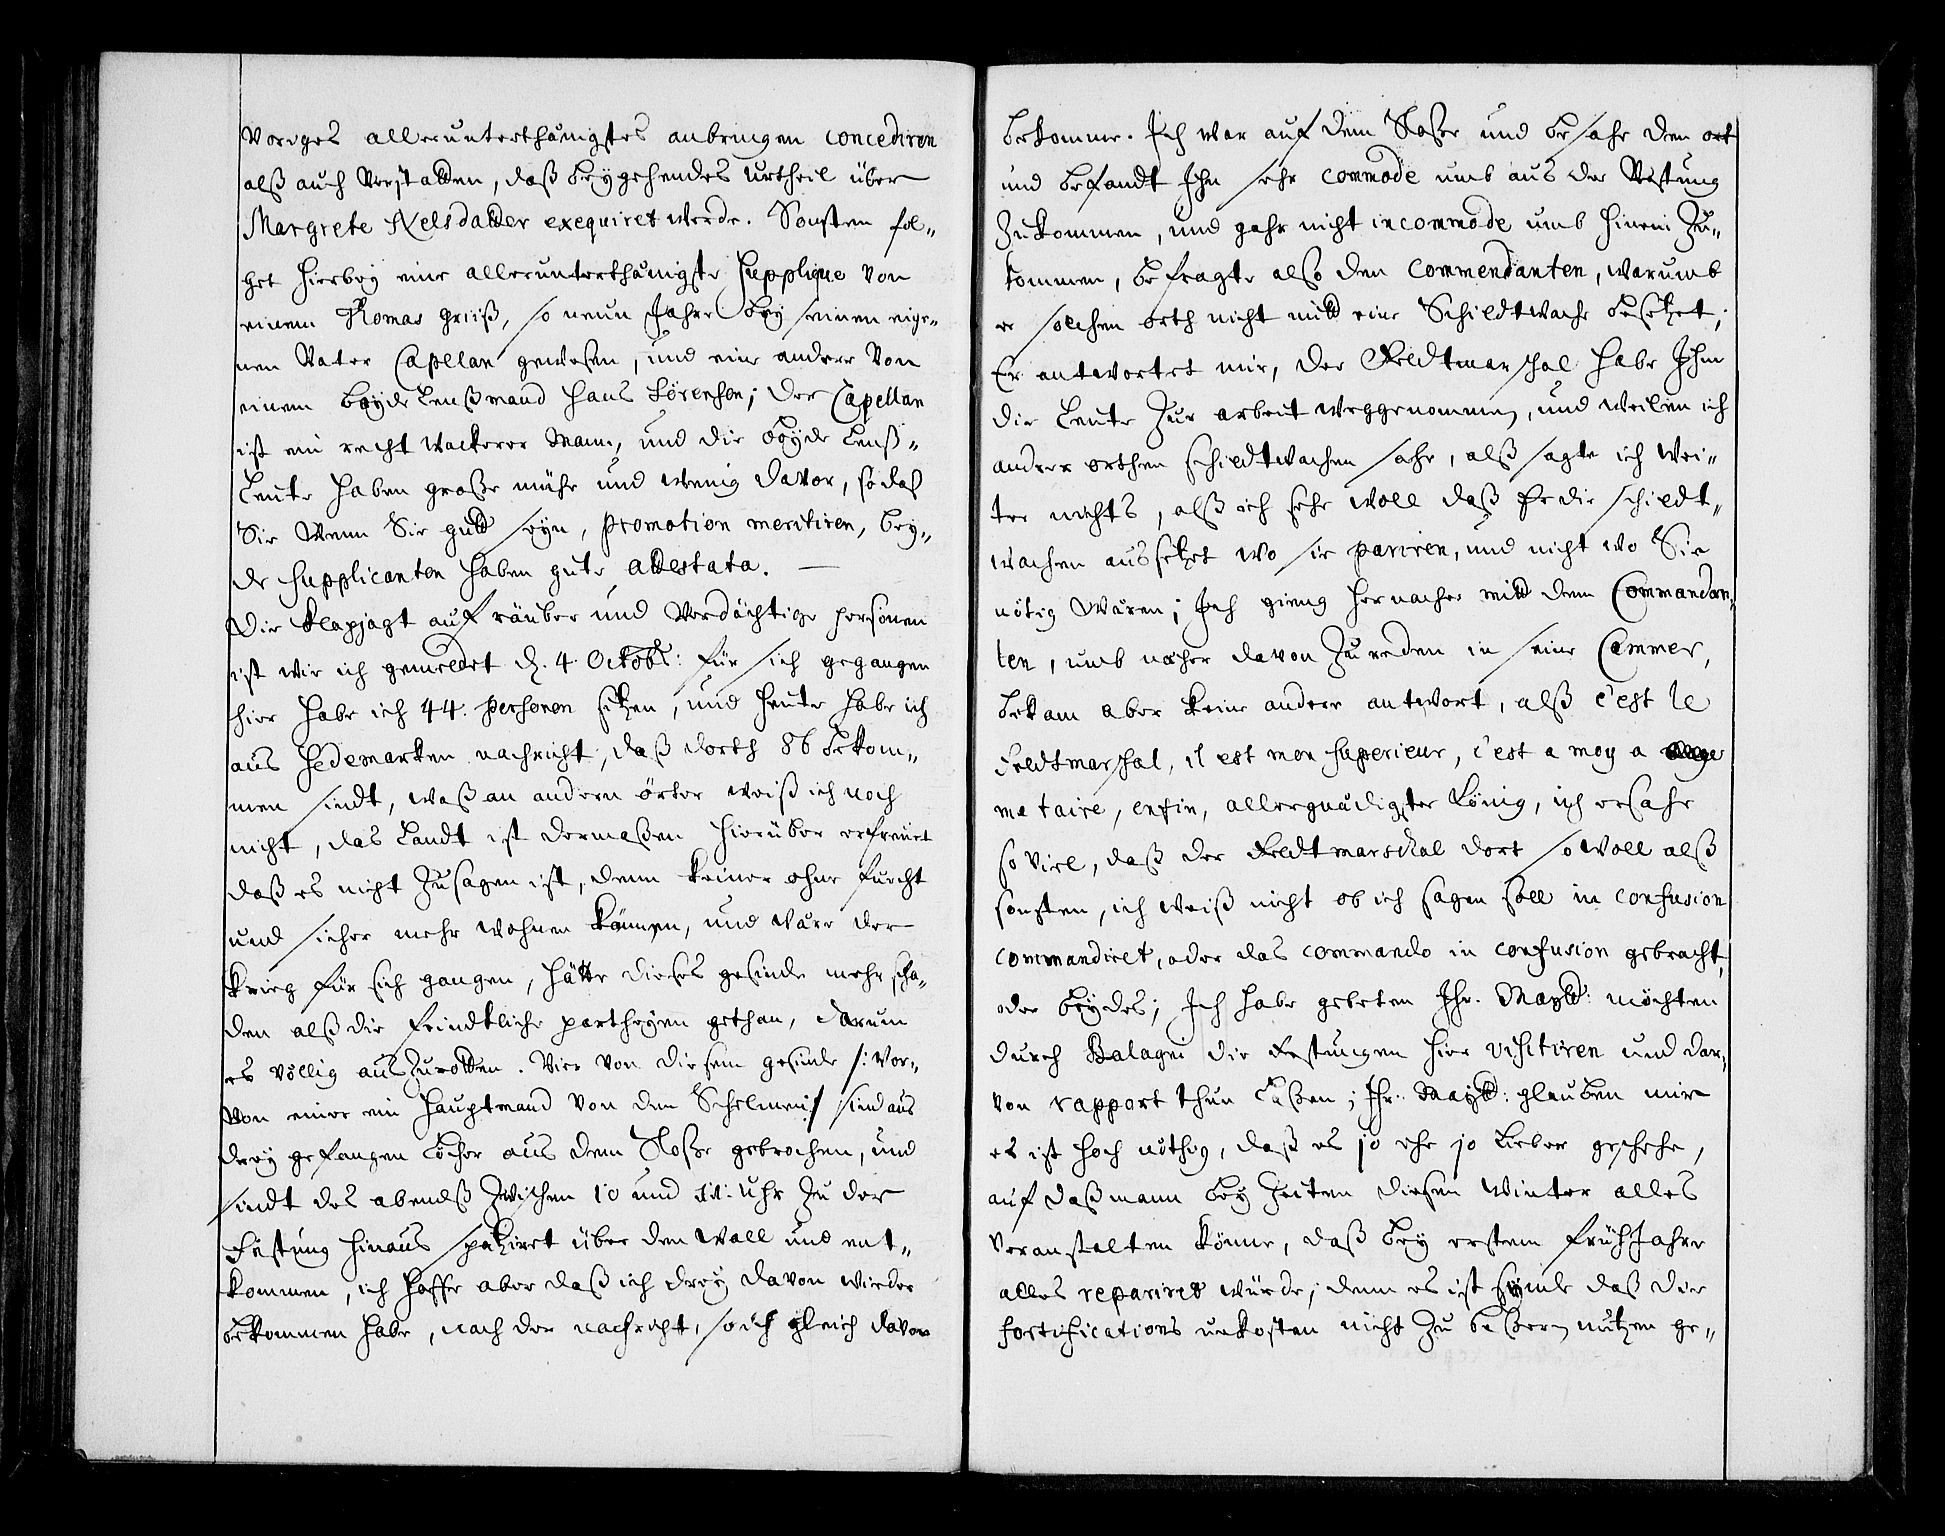 Voriges allerunterthänigstes anbringen concediren
alß auch Verstatten, daß beygehendes Urtheil über
Margrete Nelsdatter exequiret werde. Sonsten fol„
get hierbey eine allerunterthänigste Supplique von
einem Thomas Griiß, so neun Jahre bey seinen eige„
nen Vater Capellan gewesen, und eine andere Von
einem Böyde Lenßmand Hans Sörensen; der Capellan
ist ein recht wackerer Mann, und die böyde Lenß„
Leute haben große mühe und wenig davor, so daß
Sie Wenn Sie gutt seyn, promotion meritiren, bey„
de Supplicanten haben gute attestata. —
Die Klapjagt auf räuber und Verdächtige personen
ist wie ich gemeldet d. 4. Octobr: für sich gegangen
hier habe ich 44. personen sitzen, und heute habe ich
aus Hedemarken nachricht, daß dorth 86 bekom„
men sindt, waß an andern örter weiß ich noch
nicht, das Landt ist dermaßen hierüber erfreuet
daß es nicht Zusagen ist, denn keiner ohne furcht
und sicher mehr wohnen können, und wäre der
Krieg für sich gangen, hätte dieses gesinde mehr scha„
den alß die feindtliche partheyen gethan, darum
es völlig auszurotten. Vier von diesem gesinde /: wor„
von einer ein Hauptmand von den Schelmen :/ sind aus
drey gefangen Löcher aus dem Sloße gebrochen, und
sindt des abendß Zwischen 10 und 11. Uhr Zu der
Festung hinaus spatziret über den Wall und ent„
kommen, ich hoffe aber daß ich drey davon wieder
bekommen habe, nach der nachricht, so ich gleich davon
bekomme. Ich war auf dem Sloße und besahe den ort
und befandt Ihn sehr commode umb aus der Vestung
Zukommen, und gahr nicht incommode umb hinein Zu„
kommen, befragte also den Commendanten, warumb
er solchen orth nicht mitt eine Schildtwache besetzet;
Er antwortet mir, der Feldtmarschal habe Ihm
die Leute Zur arbeit weggenommen, und weilen ich
andere orthen schildtwachen sahe, alß sagte ich wei„
ter nichts, alß ich sehe woll daß Er die schildt„
wachen aussetzet wo sie pariren, und nicht wo Sie
nötig wären; Ich gieng hernacher mitt dem Commandan„
ten, umb näher davon Zu reden in seine Cammer,
bekam aber keine andere antwort, alß c'est le
Feldtmarschal, il est mon superieur, c'est a moy a
me taire, enfin, allergnädigster König, ich ersahe
so viel, daß der Feldtmarschal dort so woll alß
sonsten, ich weiß nicht ob ich sagen soll in confusion
commandiret, oder das commando in confusion gebracht,
oder beydes; Ich habe gebeten Ihr. Maytt: möchten
durch Balagni die Festungen hier visitiren und dar„
von rapport thun laßen; Ihr. Maytt: glauben mir
es ist hoch nöthig, daß es jo ehe jo Lieber geschehe,
auf daß mann bey Zeiten diesen Winter alles
veranstalten könne, daß bey erstem FrühJahre
alles repariret würde; denn es ist Sünde daß die
fortifications unkosten nicht Zu beßern nutzen ge„